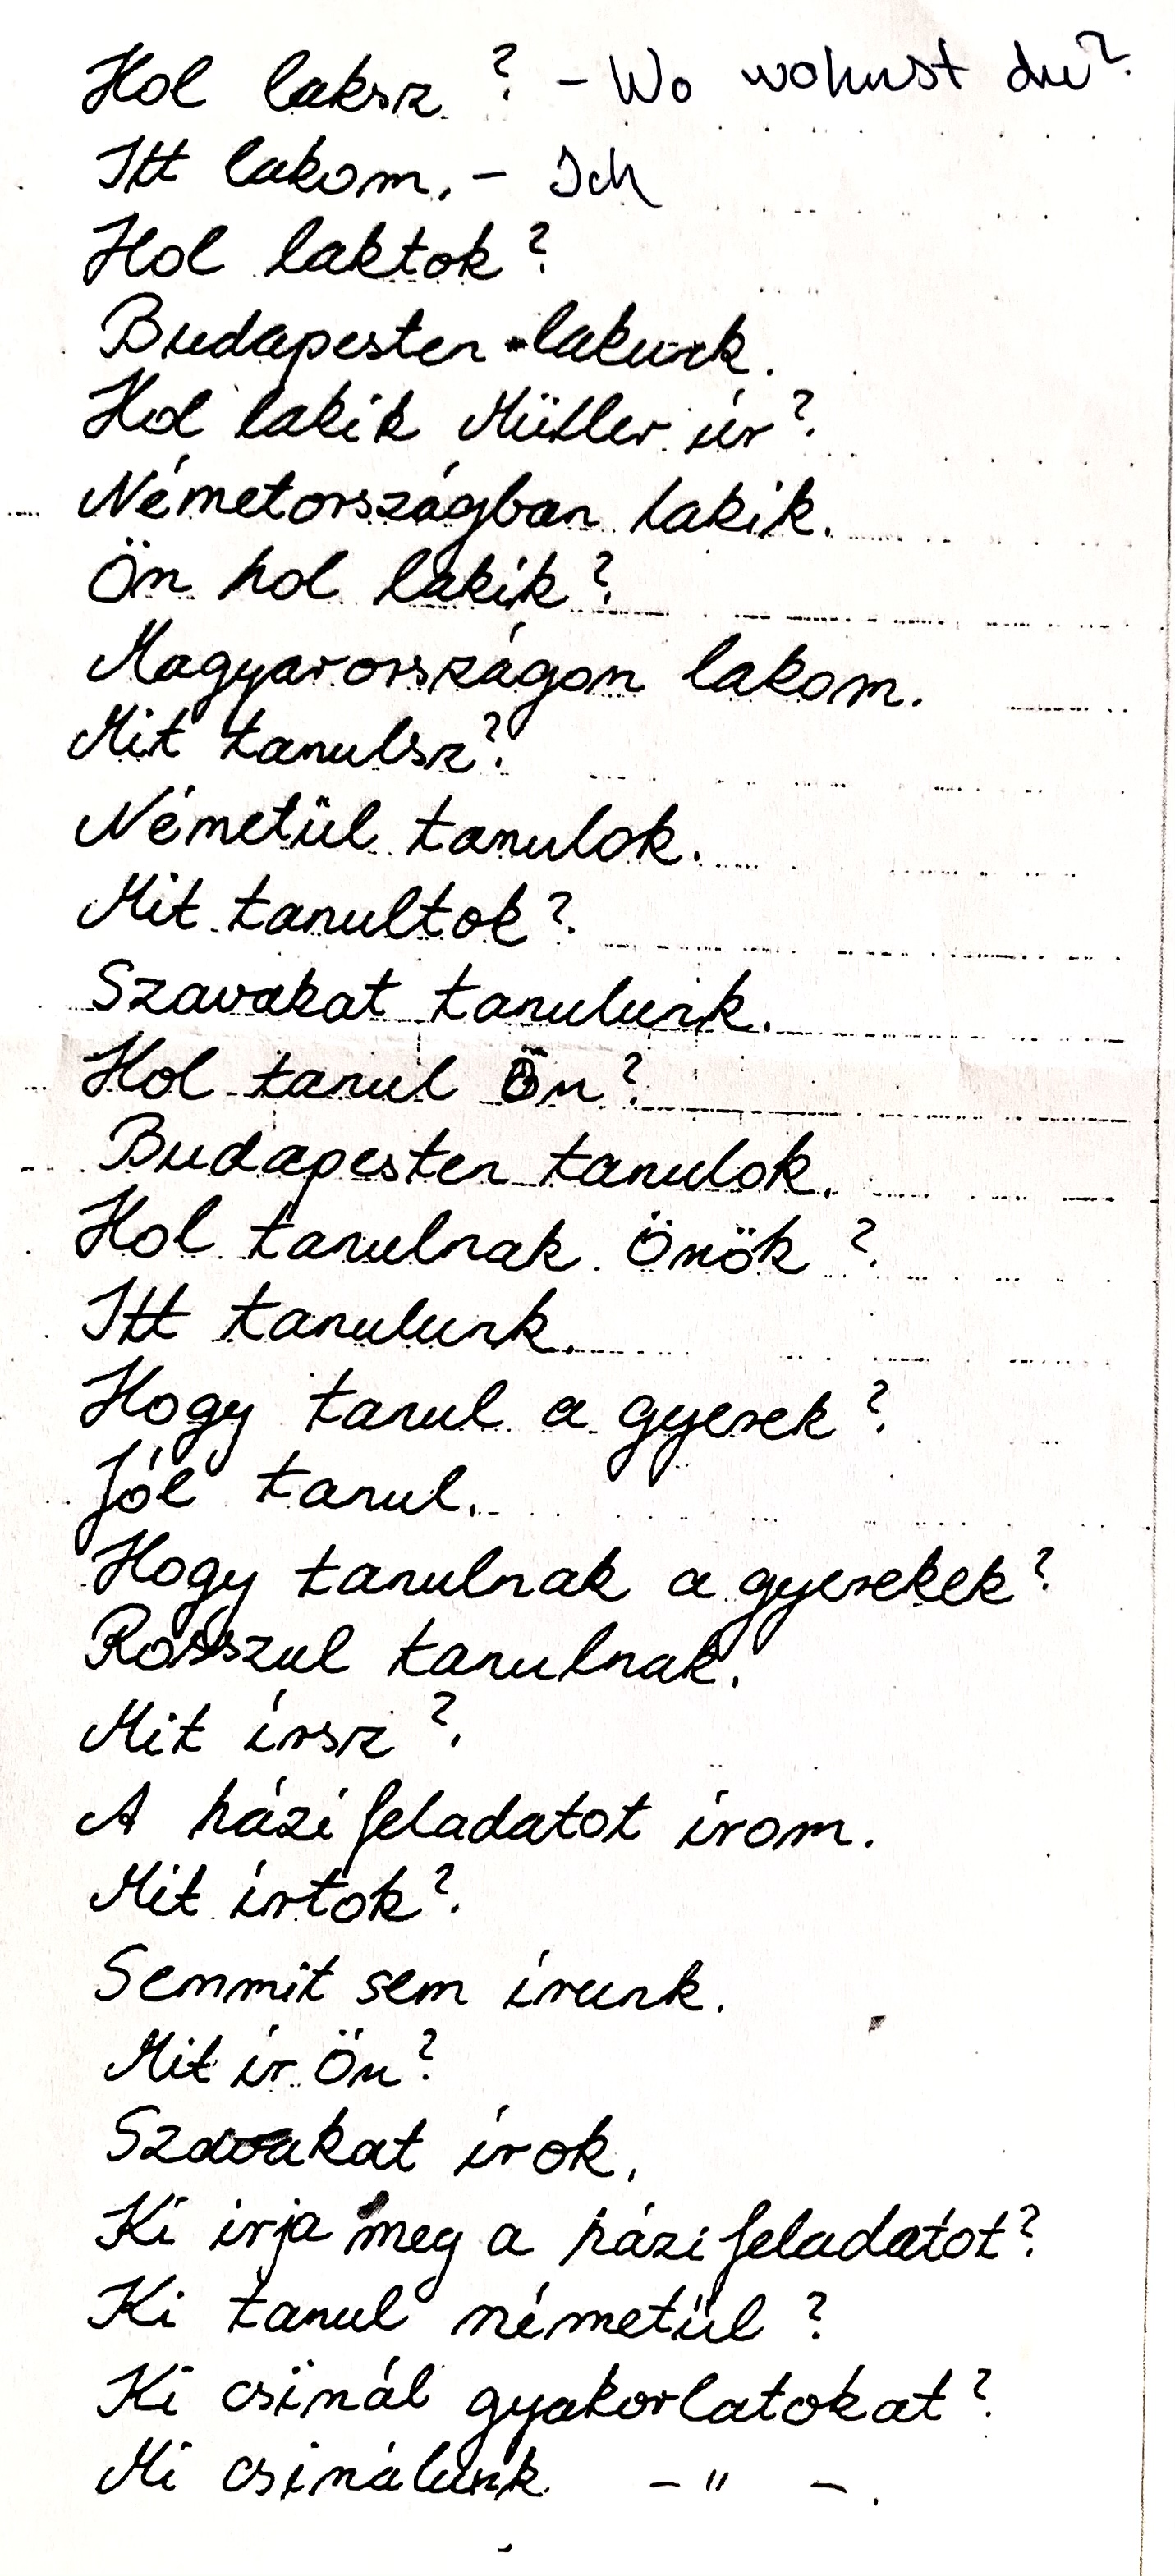 Hol laksz? - Wo wohnst du?
Itt lakom. - Ich
Hol laktok?
Budapesten lakunk.
Hol lakik Müller úr?
Németországban lakik.
Ön hol lakik?
Magyarországon lakom.
Mit tanulsz?
Németül tanulok.
Mit tanultok?
Szavakat tanulunk.
Hol tanul Ön?
Budapesten tanulok.
Hol tanulnak Önök?
Itt tanulunk.
Hogy tanul a gyerek?
Jól tanul.
Hogy tanulnak a gyerekek?
Rosszul tanulnak.
Mit írsz?
A házifeladatot írom.
Mit írtok?
Semmit sem írunk.
Mit ír Ön?
Szavakat írok.
Ki írja meg a házifeladatot?
Ki tanul németül?
Ki csinál gyakorlatokat?
Mi csinálunk - " -.